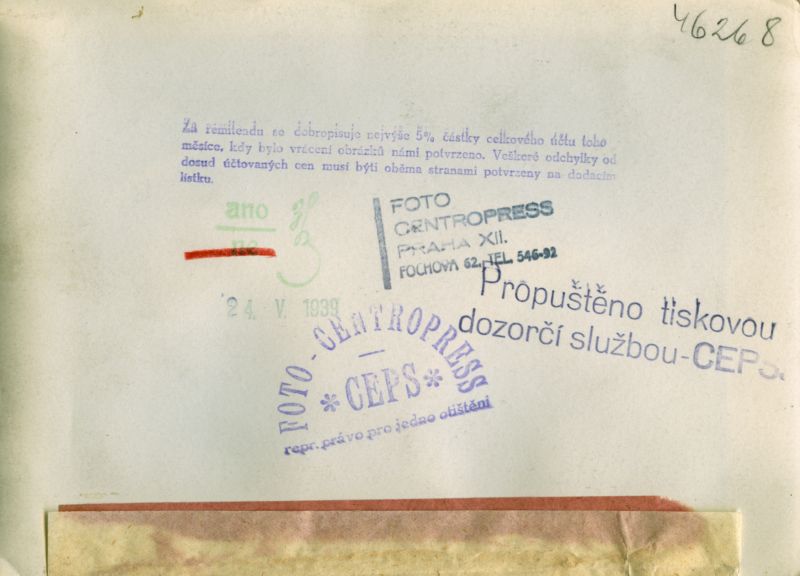 46268
Za remitendu se dobropisuje nejvýše 5% částky celkového účtu toho
měsíce, kdy bylo vrácení obrázků námi potvrzeno. Veškeré odchylky od
dosud účtovaných cen musí býti oběma stranami potvrzeny na dodacím
lístku.
ano
ne
FOTO
CENTROPRESS
PRAHA XII.
FOCHOVA 62. TEL. 546-92
24. V. 1939
Propuštěno tiskovou
dozorčí službou-CEPS.
FOTO-CENTROPRESS
* CEPS *
repr. právo pro jedno otištění